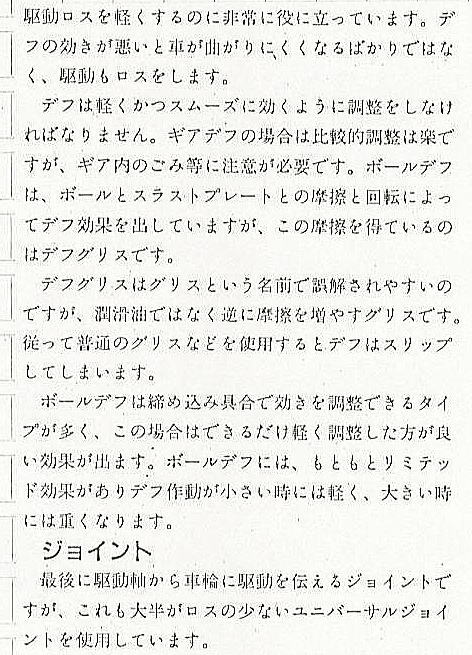 駆動ロスを軽くするのに非常に役に立っています。デ
フの効きが悪いと車が曲がりにくくなるばかりではな
く、駆動もロスをします。
デフは軽くかつスムーズに効くように調整をしなけ
ればなりません。ギアデフの場合は比較的調整は楽で
すが、ギア内のごみ等に注意が必要です。ボールデフ
は、ボールとスラストプレートとの摩擦と回転によっ
てデフ効果を出していますが、この摩擦を得ているの
はデフグリスです。
デフグリスはグリスという名前で誤解されやすいの
ですが、潤滑油ではなく逆に摩擦を増やすグリスです。
従って普通のグリスなどを使用するとデフはスリップ
してしまいます。
ボールデフは締め込み具合で効きを調整できるタイ
プが多く、この場合はできるだけ軽く調整した方が良
い効果が出ます。ボールデフには、もともとリミテッ
ド効果がありデフ作動が小さい時には軽く、大きい時
には重くなります。
ジョイント
最後に駆動軸から車輪に駆動を伝えるジョイントで
すが、これも大半がロスの少ないユニバーサルジョイ
ントを使用しています。